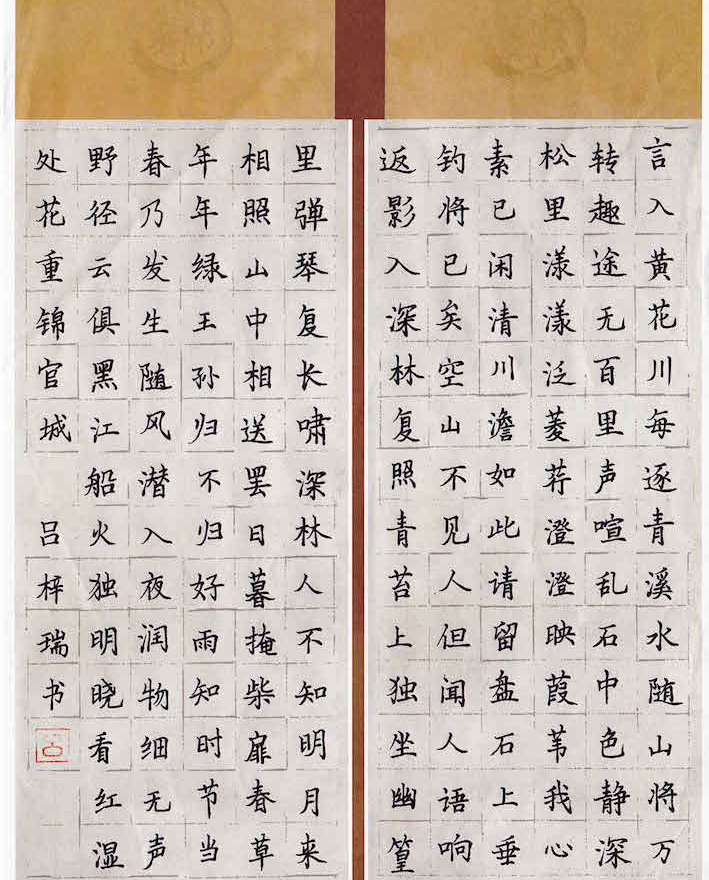 言入黄花川每逐青溪水随山将万
转趣途无百里声喧乱石中色静深
松里漾漾泛菱荇澄澄映葭苇我心
素已闲清川澹如此请留盘石上垂
钓将已矣空山不见人但闻人语响
返影入深林复照青苔上独坐幽篁
里弹琴复长啸深林人不知明月来
相照山中相送罢日暮掩柴扉春草
年年绿王孙归不归好雨知时节当
春乃发生随风潜入夜润物细无声
野径云俱黑江船火独明晓看红湿
处花重锦官城 吕梓瑞书